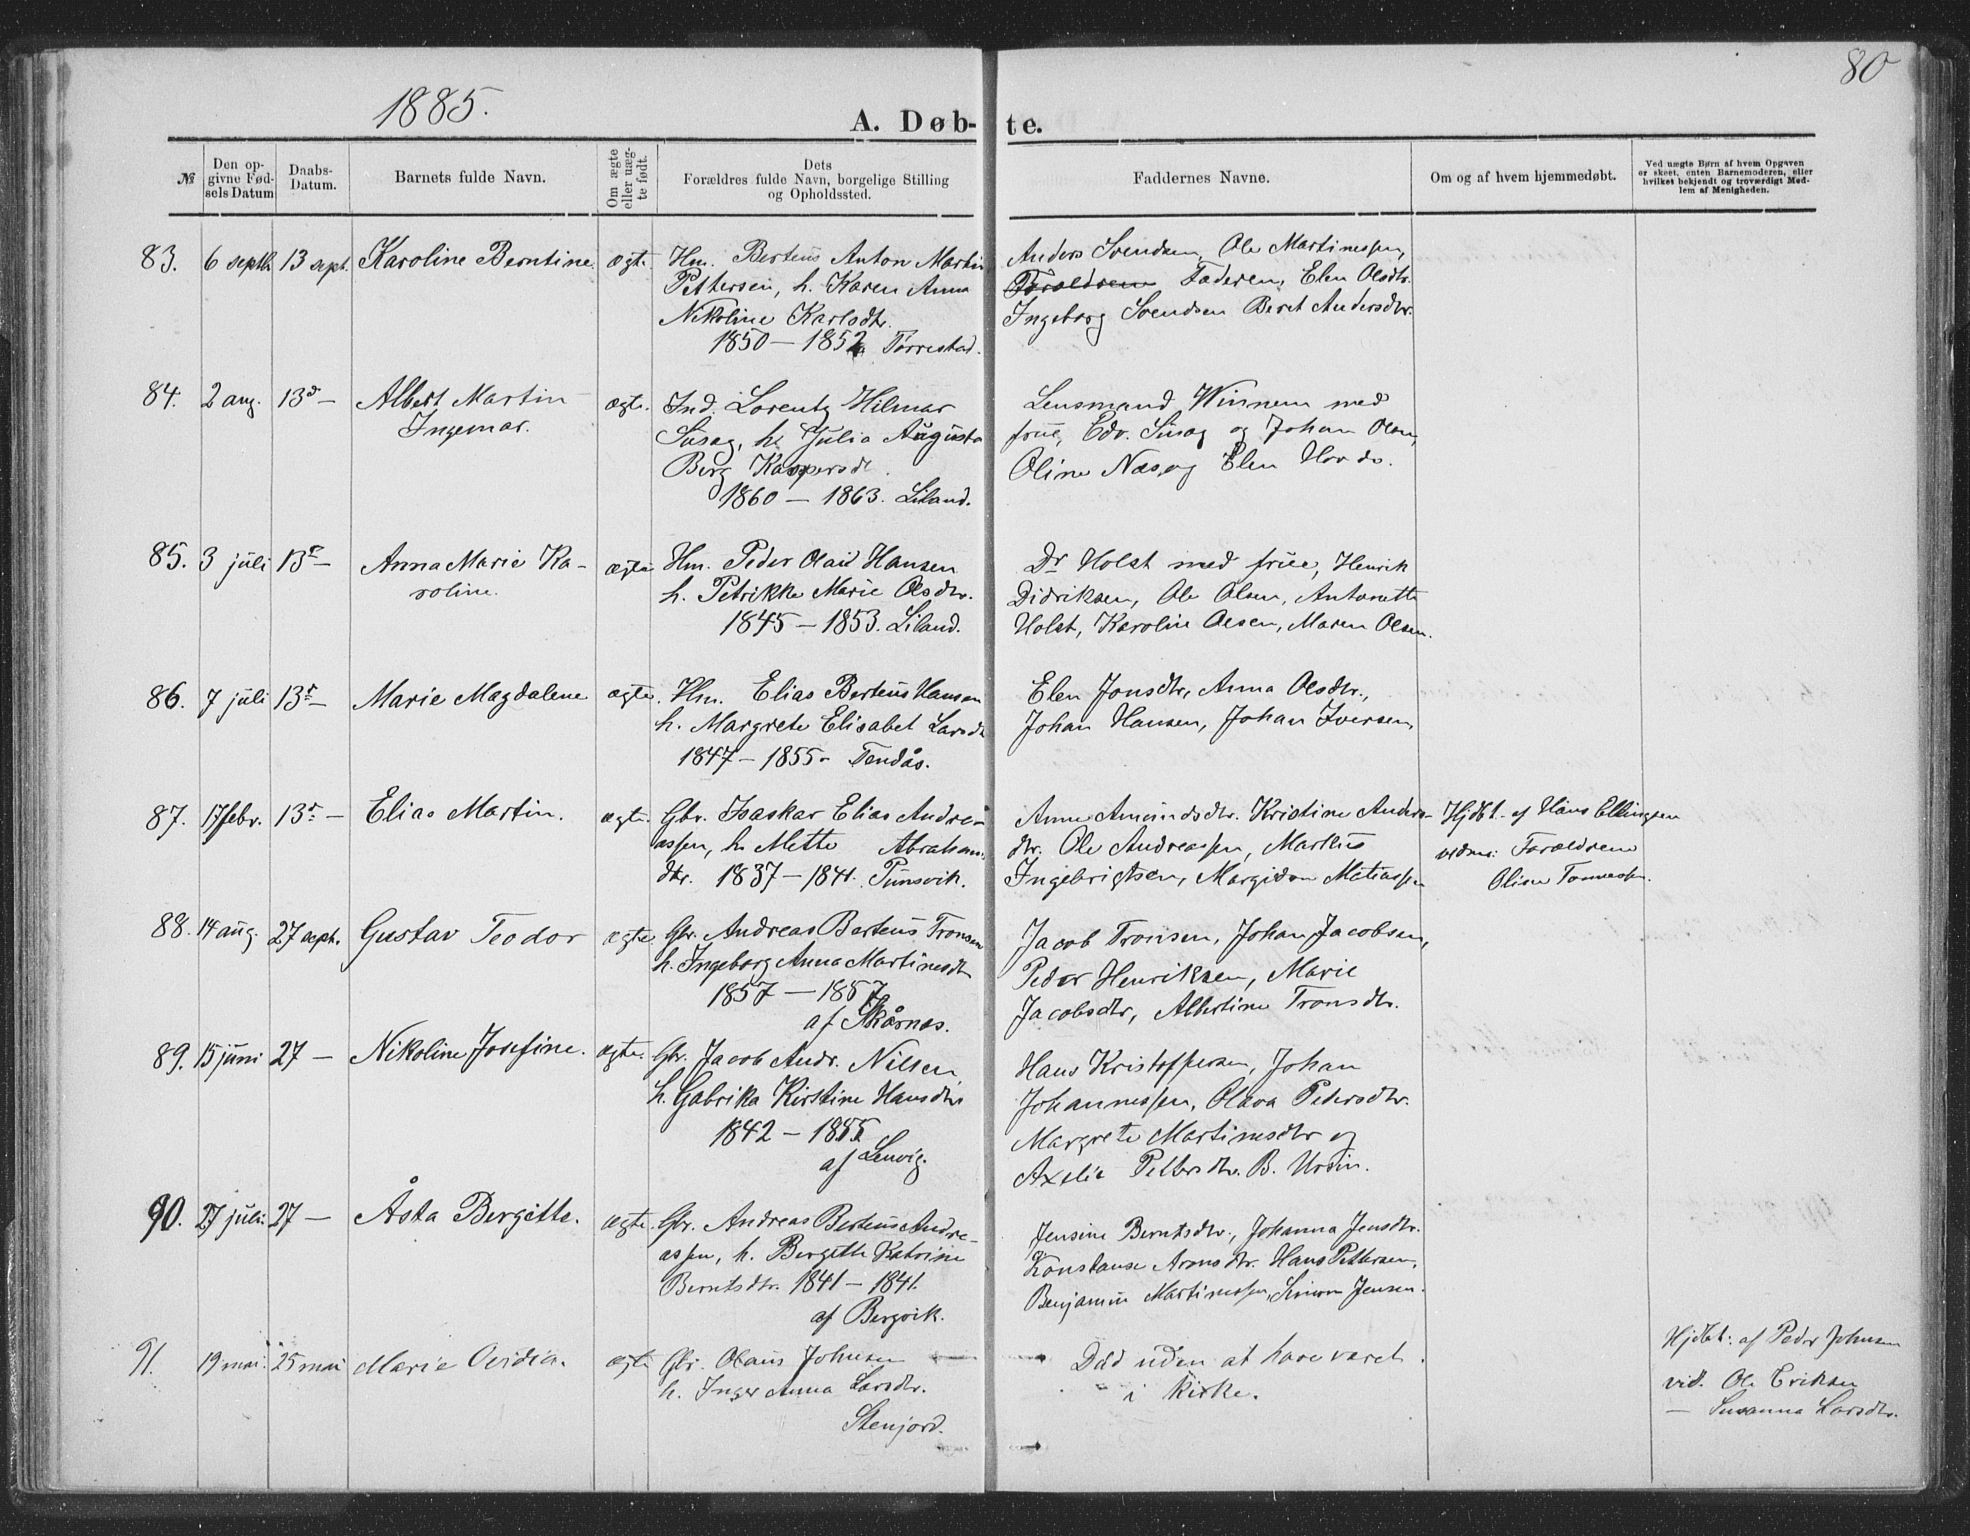 80
1885.
A. Døbte.
№
Den opgivne Fødsels Datum
Daabs-Datum.
Barnets fulde Navn.
Om ægte eller uægte født.
Dets Forældres fulde Navn, borgelige Stilling og Opholdssted.
Faddernes Navne.
Om og af hvem hjemmedøbt.
Ved uægte Børn af hvem Opgaven er skeet, enten Barnemoderen, eller hvilket bekjendt og troværdigt Medlem af Menigheden.
83. 6 septb 13 sept. Karoline Berntine. ægte Hm. Berteus Anton Martin
Pettersen, h. Karen Anna
Nikoline Karlsdtr.
1850 — 1852 Tørrestad.
Anders Svendsen, Ole Martinessen,
Forældrene Faderen, Elen Olsdtr.
Ingeborg Svendsen Beret Andersdtr.
84. 2 aug. 13d — Albert Martin
Ingemar.
ægte. Ind. Lorentz Hilmar
Susag, h. Julia Augusta
Berg Kaspersdt.
1860 — 1863. Liland.
Lensmand Winnem med
frue, Edv. Susag og Johan Olsen,
Oline Næs og Elen Hov do.
85. 3 juli 13d — Anna Marie Ka-
roline.
ægte Hm. Peder Olai Hansen
h. Petrikke Marie Olsdtr.
1845 — 1853. Liland.
Dr Holst med frue, Henrik
Didriksen, Ole Olsen, Antonette
Holst, Karoline Olsen, Maren Olsen.
86. 7 juli 13d — Marie Magdalene ægte. Hm. Elias Berteus Hansen
h. Margrete Elisabet Larsdt
1847 — 1855 - Tendås.
Elen Jonsdtr, Anna Olsdtr.,
Johan Hansen, Johan Iversen,
87. 17 febr. 13d — Elias Martin. ægte. Gbr. Isaskar Elias Andre-
assen, h. Mette Abrahams
dtr. 1837 — 1841. Punsvik.
Anne Amundsdtr. Kristine Anders-
dtr. Ole Andreassen, Markus
Ingebrigtsen, Margido Matiassen
Hjdbt. af Hans Ellingsen
vidner: Forældrene
Oline Tomassen.
88. 14 aug. 27 sept. Gustav Teodor ægte. Gbr. Andreas Berteus Tronsen
h. Ingeborg Anna Martinesdtr
1857 — 1857
af Skårnes.
Jacob Tronsen, Johan Jacobsen,
Peder Henriksen, Marie
Jacobsdtr, Albertine Tronsdtr.
89. 15 juni 27 — Nikoline Josefine. ægte. Gbr. Jacob Andr. Nilsen
h. Gabrika Kirstine Hansdtr
1842 — 1855
af Lenvig.
Hans Kristoffersen, Johan
Johannessen, Olava Pedersdtr.
Margrete Martinesdtr og
Axelie Pettersdtr. B. Ursin.
90. 27 juli. 27 — Åsta Bergitte. ægte. Gbr. Andreas Berteus Andre-
assen, h. Bergitte Katrine
Berntsdtr. 1841 — 1841.
af Bergvik.
Jensine Berntsdtr., Johanna Jensdtr.
Konstanse Aronsdtr. Hans Pettersen,
Benjamin Martinessen, Simon Jensen.
91. 19 mai. 25 mai Marie Ovidia. ægte Gbr. Olaus Johnsen
h. Inger Anna Larsdtr.
Stenjord.
Død uden at have været
i kirke.
Hjdbt: af Peder Johnsen
vid. Ole Eriksen
— Susanna Larsdtr.